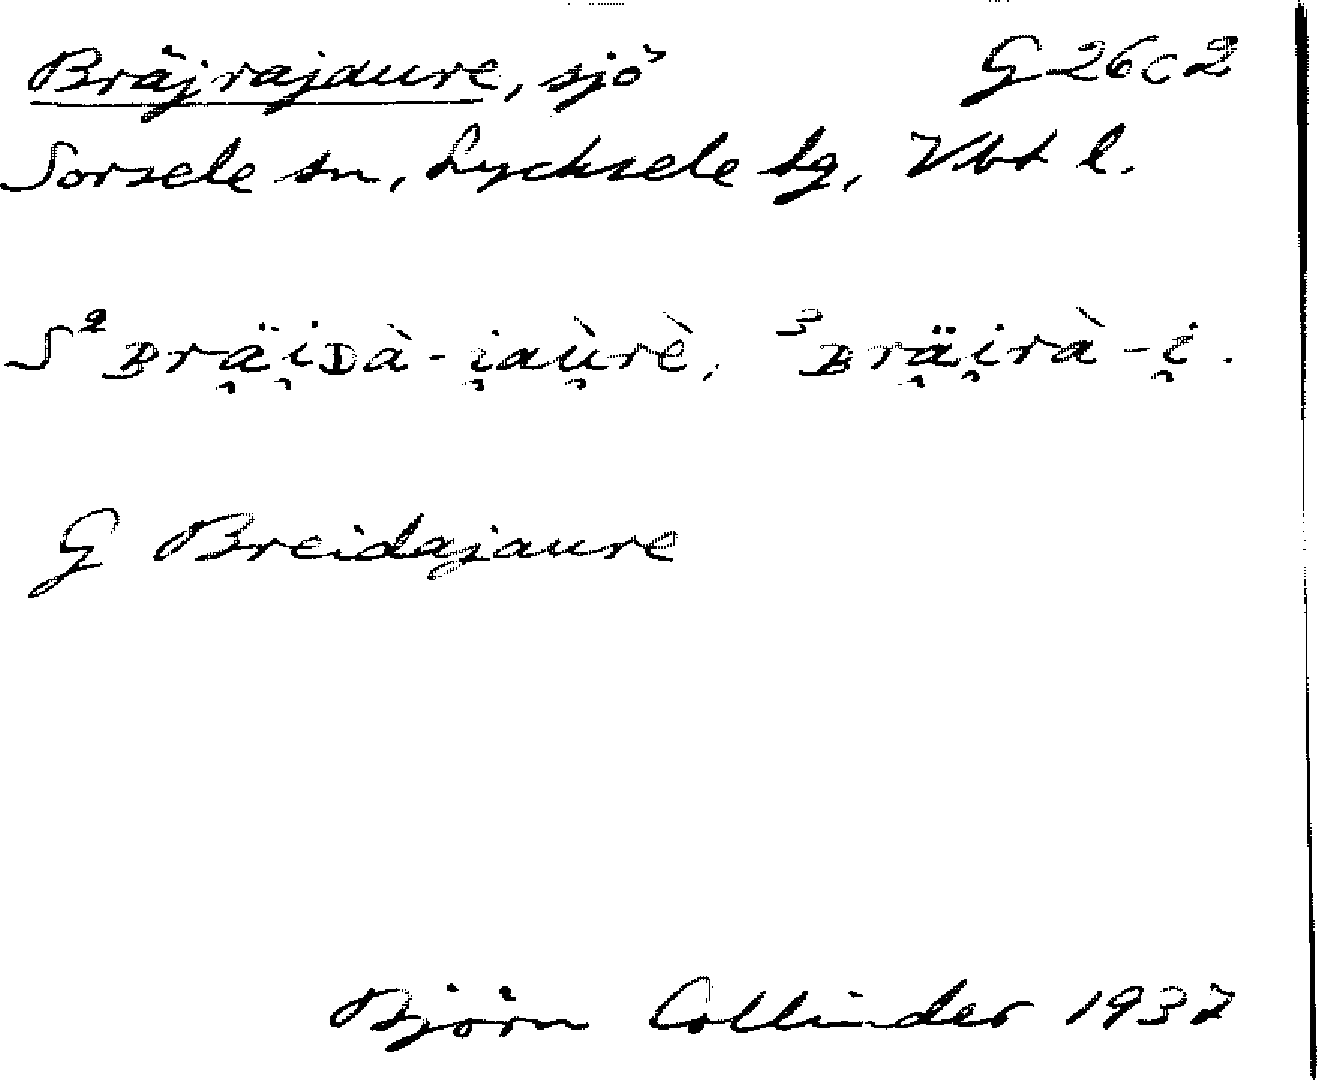 Bräjrajaure, sjö G 26c2
Sorsele sn, Lycksele lg, Vbt l.
S ²ʙrä̯i̯ᴅà-i̯au̯rè, ³ʙrä̯i̯rà-i̯.
G Breidajaure
Björn Collinder 1937